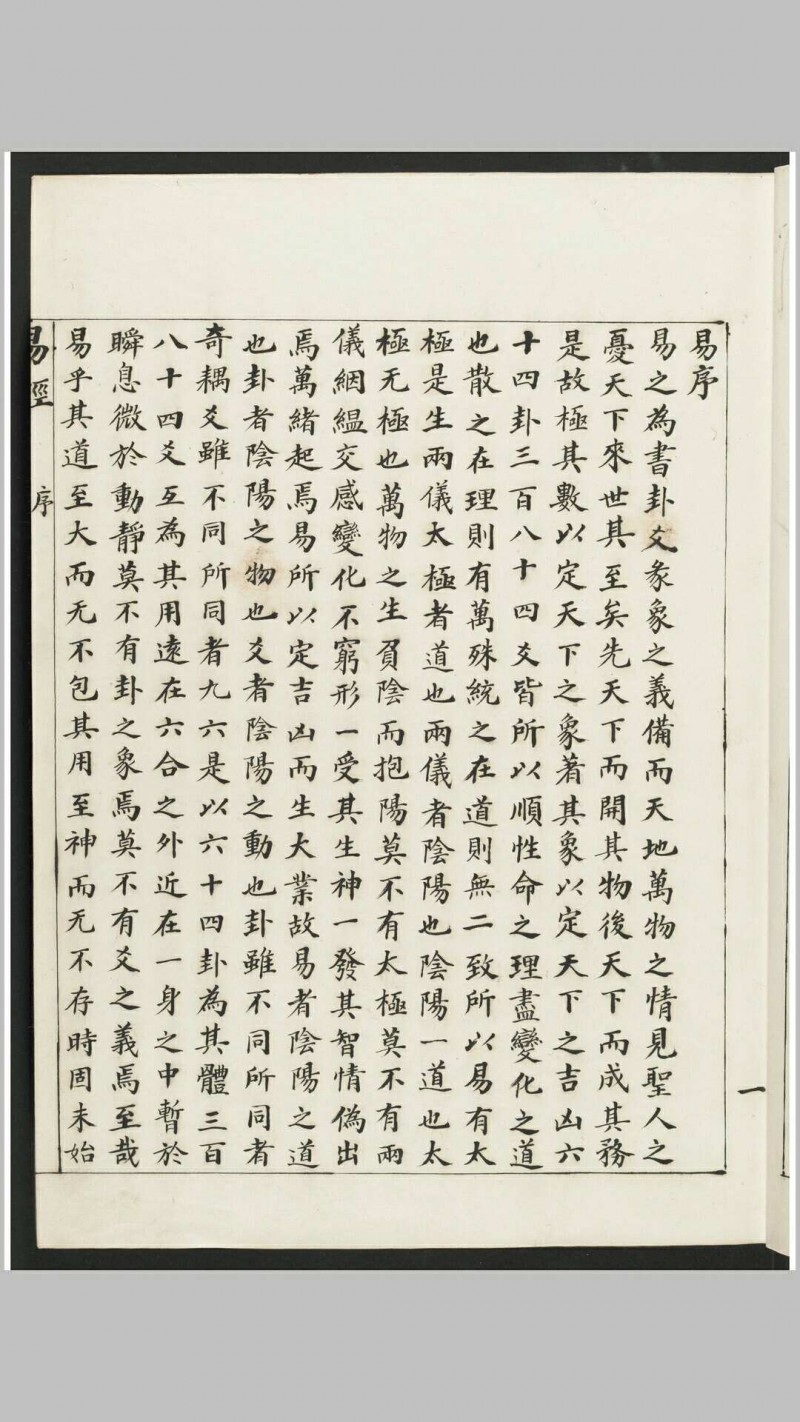 易序
易之為書卦爻彖象之義備而天地萬物之情見聖人之
憂天下來世其至矣先天下而開其物後天下而成其務
是故極其數以定天下之象著其象以定天下之吉凶六
十四卦三百八十四爻皆所以順性命之理盡變化之道
也散之在理則有萬殊統之在道則無二致所以易有太
極是生兩儀太極者道也兩儀者陰陽也陰陽一道也太
極无極也萬物之生負陰而抱陽莫不有太極莫不有兩
儀絪緼交感變化不窮形一受其生神一發其智情偽出
焉萬緒起焉易所以定吉凶而生大業故易者陰陽之道
也卦者陰陽之物也爻者陰陽之動也卦雖不同所同者
奇耦爻雖不同所同者九六是以六十四卦為其體三百
八十四爻互為其用遠在六合之外近在一身之中暫於
瞬息微於動靜莫不有卦之象焉莫不有爻之義焉至哉
易乎其道至大而无不包其用至神而无不存時固未始
易經
序
一